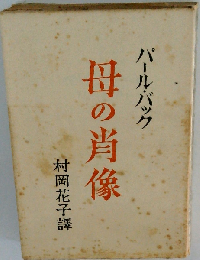 パール・バック
母の肖像
村岡花子譯